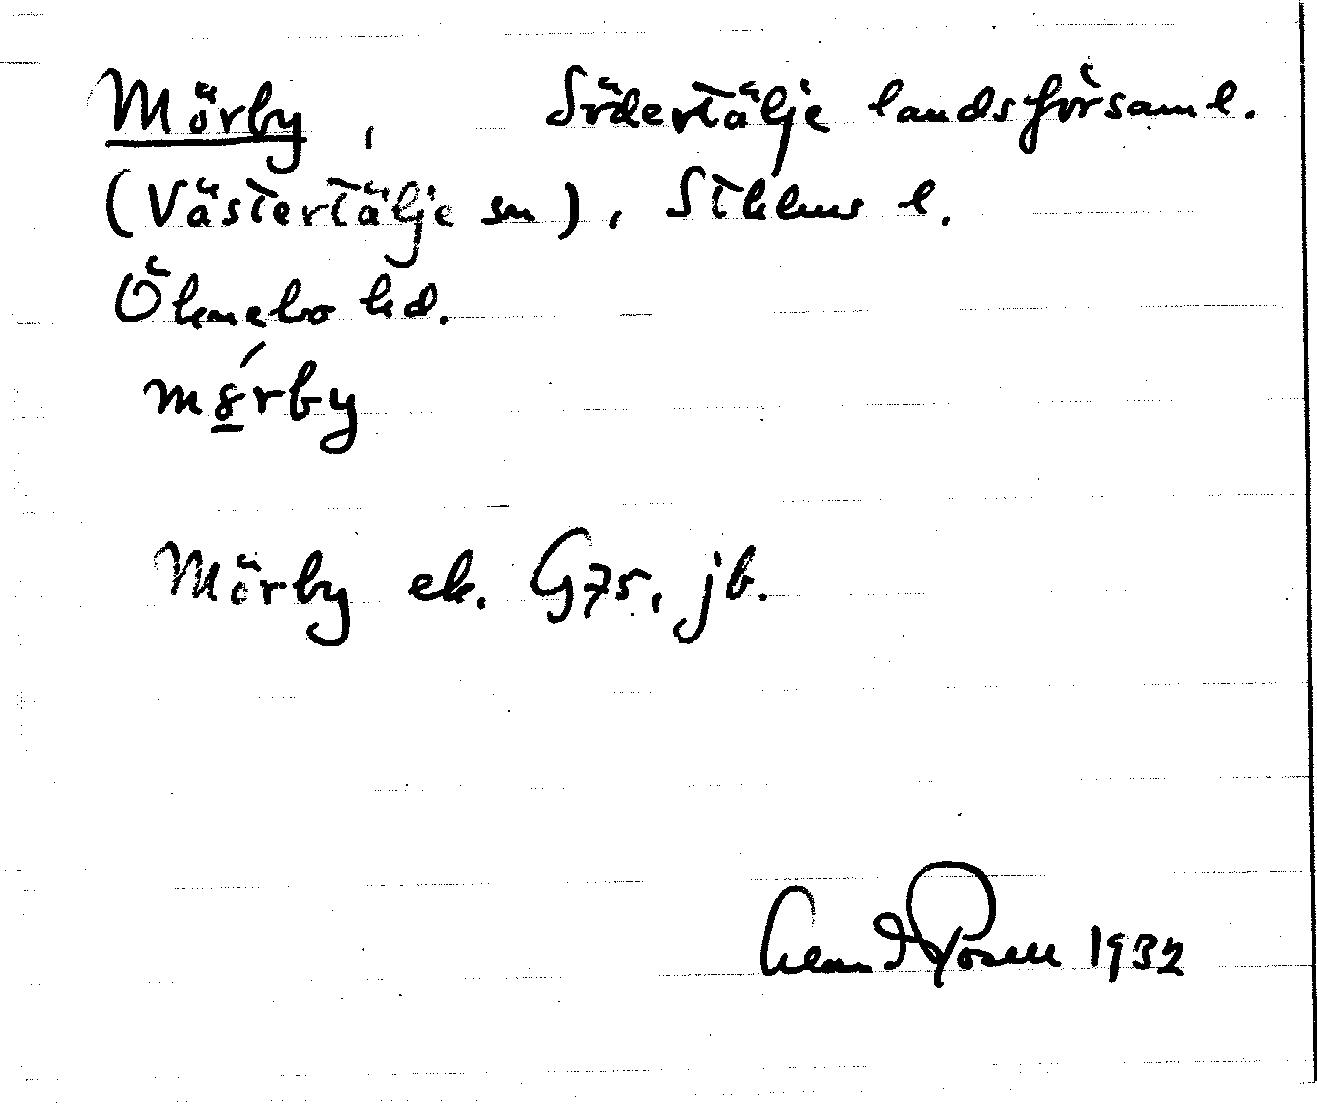 Mörby, Södertälje landsförsaml.
(Västertälje sn), Sthlms l.
Öknebo hd.
mö́rby
Mörby ek. G75, jb.
1932